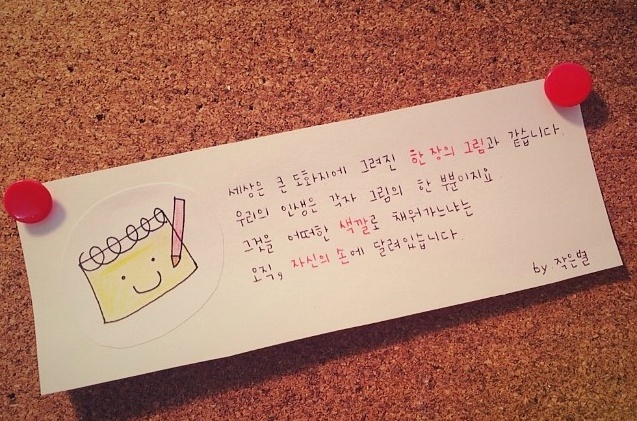 세상은 큰 도화지에 그려진 한 장의 그림과 같습니다.
우리의 인생은 각자 그림의 한 부분이지요.
그것을 어떠한 색깔로 채워가느냐는
오직, 자신의 손에 달려있습니다.
by. 작은별